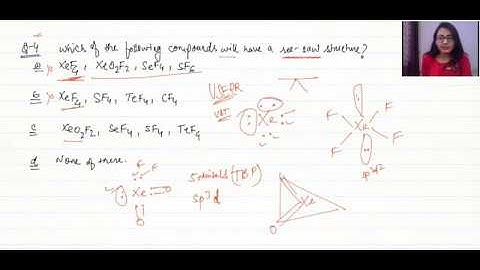 Q-4 which of the following compounds will have a see-saw structure?
a XeF4, XeO2F2, SeF4, SF6
b XeF4, SF4, TeF4, CF4
c XeO2F2, SeF4, SF4, TeF4
d None of these.
VSEPR
VBT
Xe
F F
Xe
F F
sp3d2
F F
Xe O
O
5 orbitals (TBP)
sp3d
Xe
O